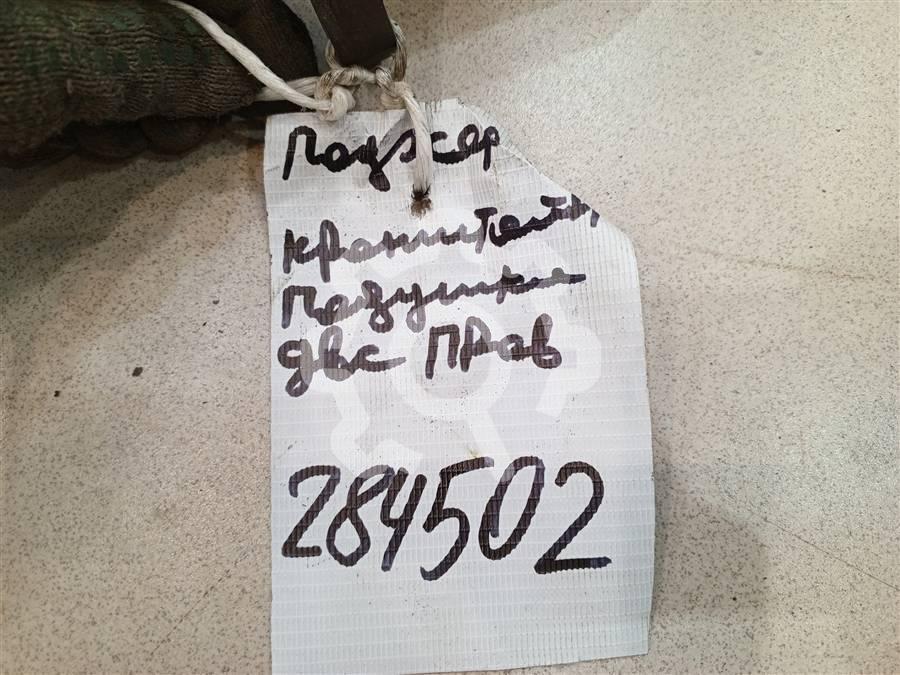 Паджер
кронштейн
подушки
двс прав
284502